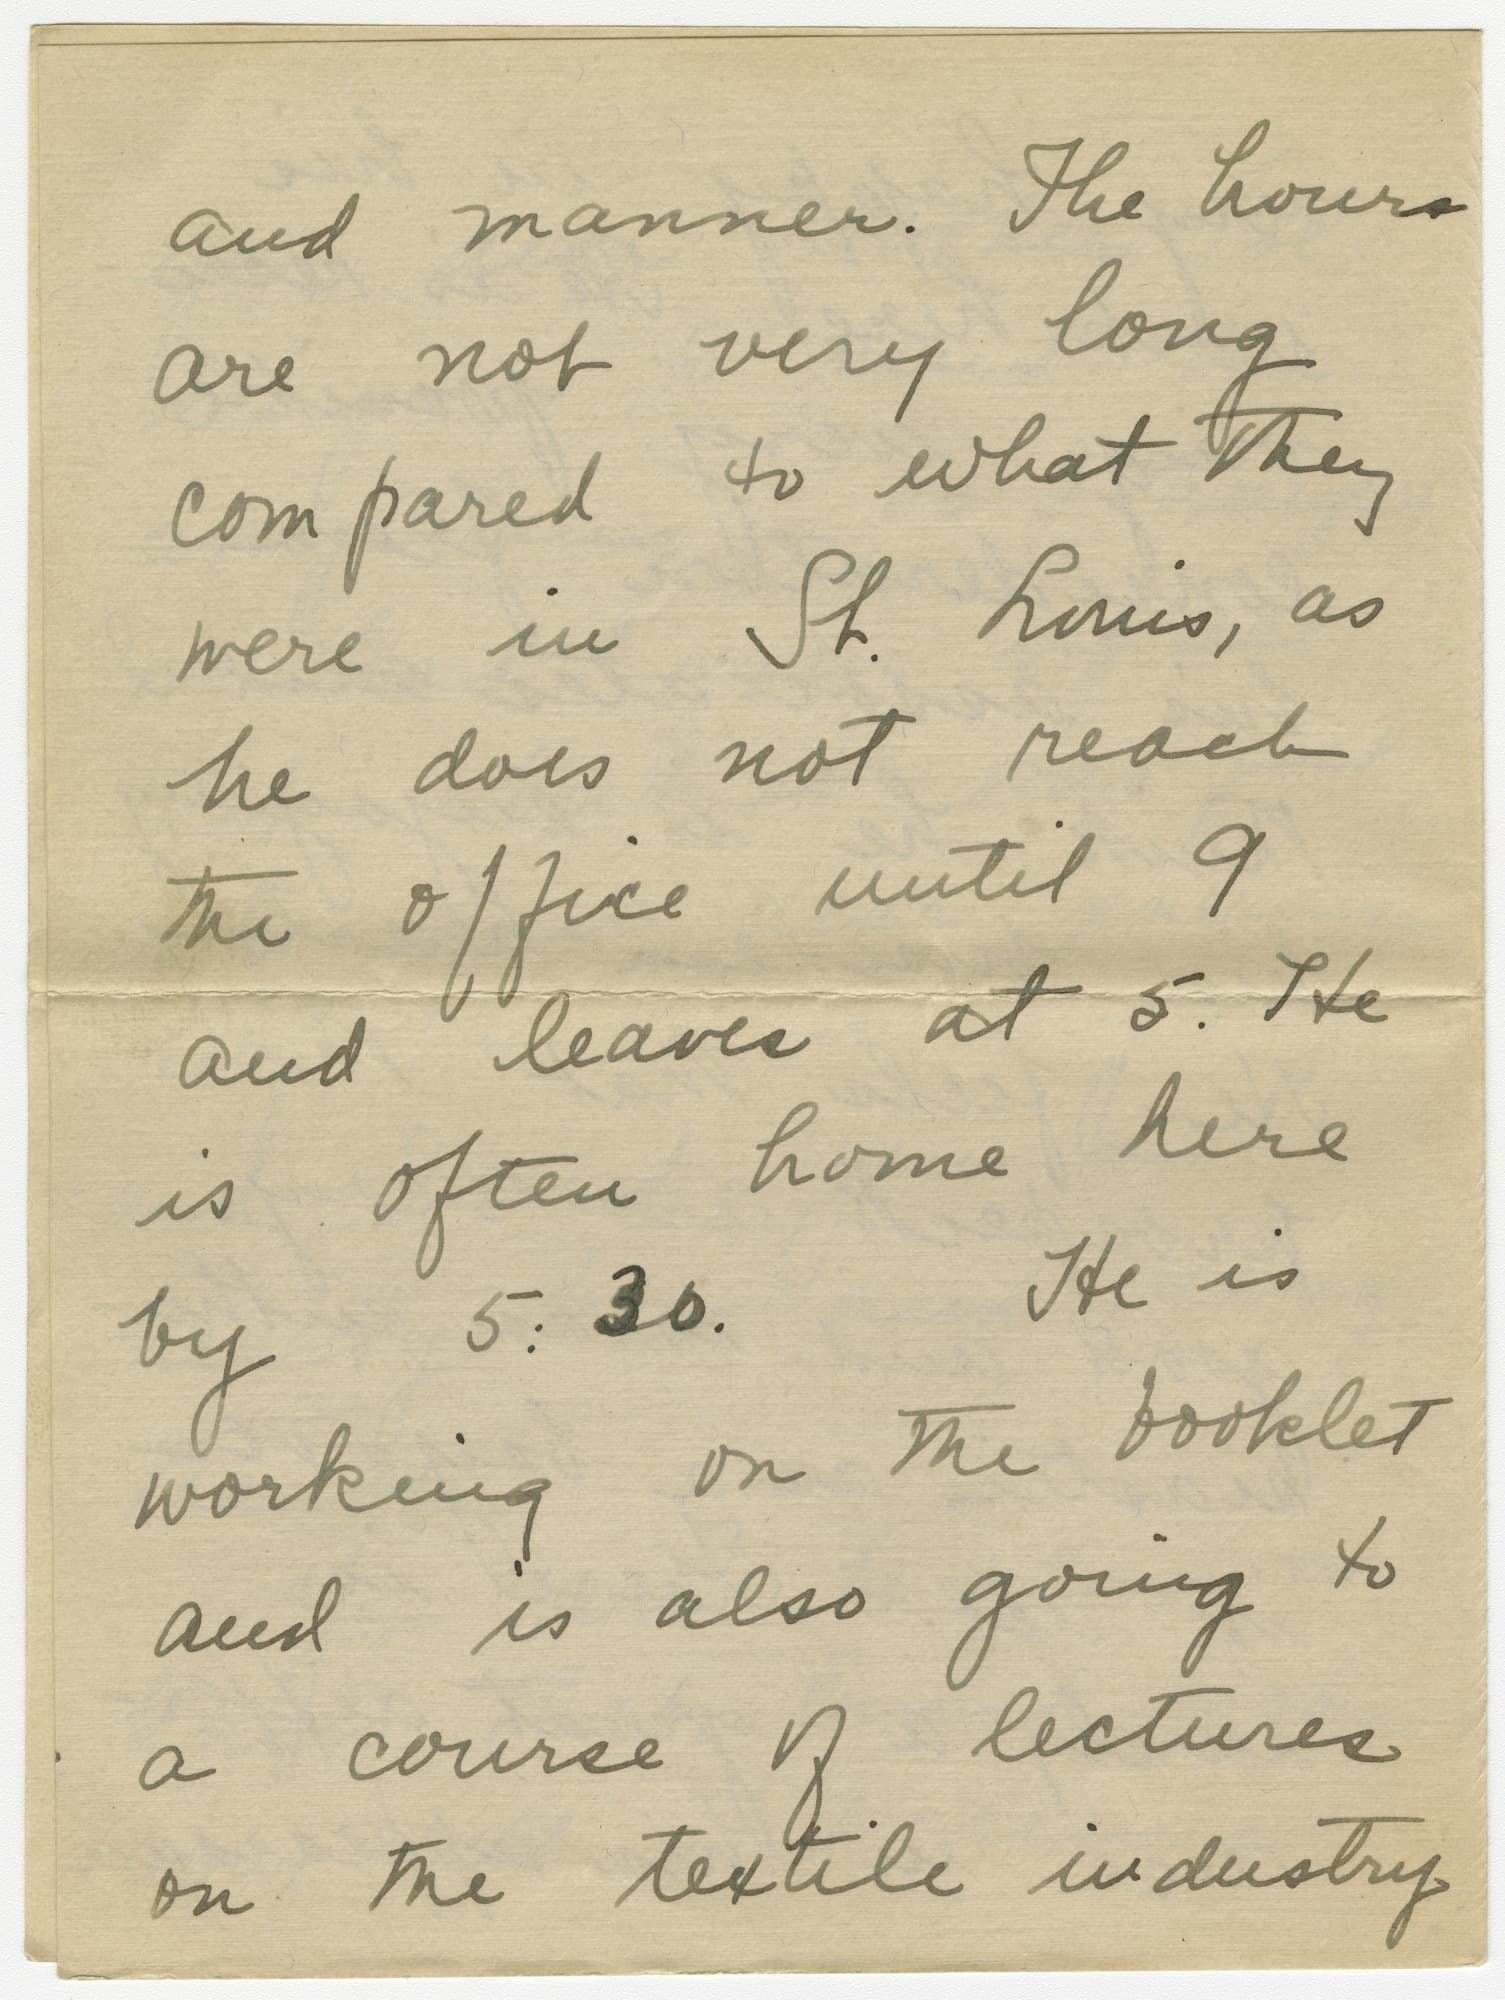 and manner. The hours
are not very long
compared to what they
were in St. Louis, as
he does not reach
the office until 9
and leaves at 5. He
is often home here
by 5:30. He is
working on the booklet
and is also going to
a course of lectures
on the textile industry